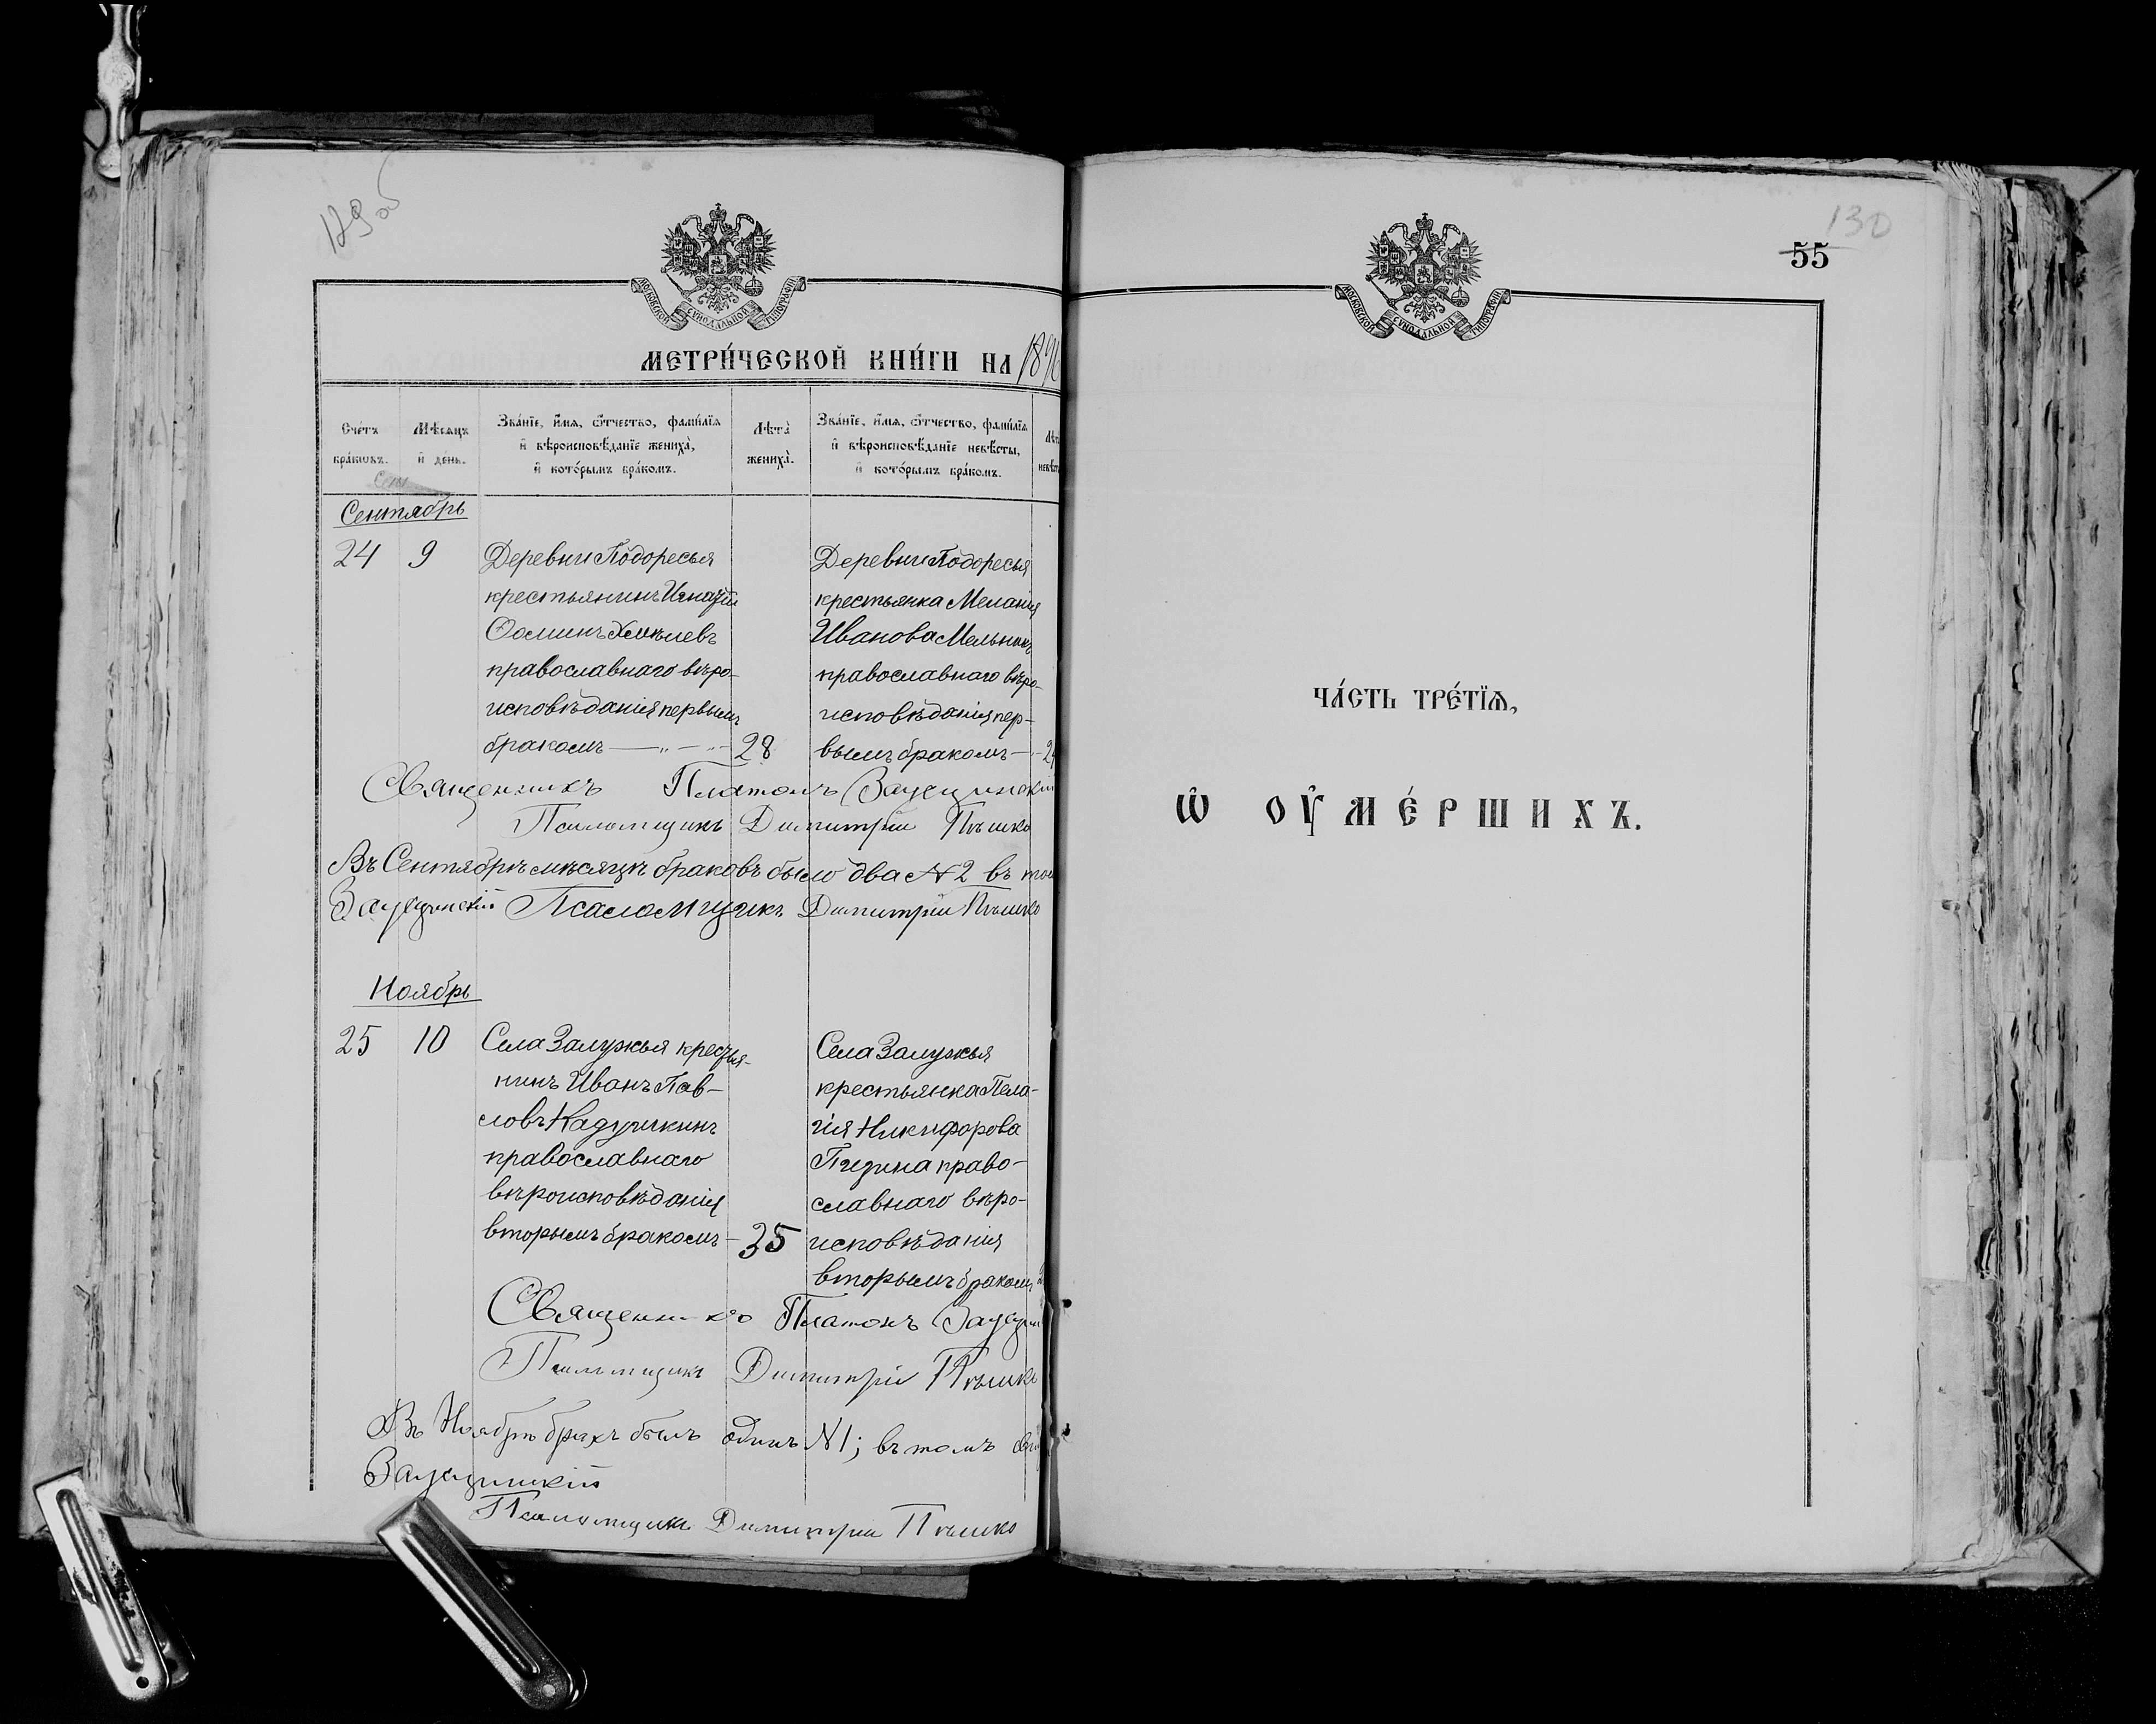 129об
МОСКОВСКОЙ СѴНОДАЛЬНОЙ ТИПОГРАФІИ
МЕТРИ́ЧЕСКОЙ КНИ́ГИ НА 1896
Сче́тъ бра́кωвъ.
Мѣ́сяцъ и҆ де́нь.
Зва́нїе, и҆́мѧ, ѻ҆́тчество, фамилїѧ
и҆ вѣроисповѣ́данїе жениха̀,
и҆ кото́рымъ бра́комъ.
Лѣта̀
жениха̀.
Зва́нїе, и҆́мѧ, ѻ҆́тчество, фамилїѧ
и҆ вѣроисповѣ́данїе невѣ́сты,
и҆ кото́рымъ бра́комъ.
Сентябрь
24 9
Деревни Подоресья
крестьянинъ Игнатій
Ѳоминъ
православнаго вѣро-
исповѣданія первымъ
бракомъ — „ — 28
Деревни Подоресья
крестьянка Меланія
Иванова Мельникъ
православнаго вѣро-
исповѣданія пер-
вымъ бракомъ —
Священникъ Платонъ Заусцинскій
Псаломщикъ Димитрій Пѣшко
Въ Сентябрѣ мѣсяцѣ браковъ было два №2 въ том
Заусцинскій Псаломщикъ Димитрій Пѣшко
Ноябрь
25 10
Села Залужья крестья-
нинъ Иванъ Пав-
ловъ Кадушкинъ
православнаго
вѣроисповѣданія
вторымъ бракомъ — 35
Села Залужья
крестьянка Пела-
гія Никифорова
право-
славнаго вѣро-
исповѣданія
вторымъ бракомъ
Священникъ Платонъ Заусцин
Псаломщикъ Димитрій Пѣшко
Въ Ноябрѣ бракъ былъ одинъ №1; въ томъ
Заусцинскій
Псаломщикъ Димитрій Пѣшко
130
55
МОСКОВСКОЙ СѴНОДАЛЬНОЙ ТИПОГРАФІИ
ЧА́СТЬ ТРЕ́ТЇѦ,
Ѡ҆ ОУ҆МЕ́РШИХЪ.